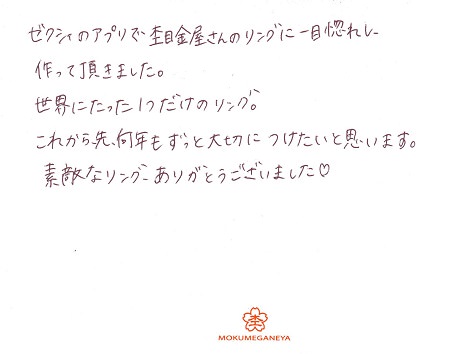 ゼクシィのアプリで杢目金屋さんのリングに一目惚れし
作って頂きました。
世界にたった1つだけのリング。
これから先、何年もずっと大切につけたいと思います。
素敵なリングありがとうございました♡
MOKUMEGANEYA